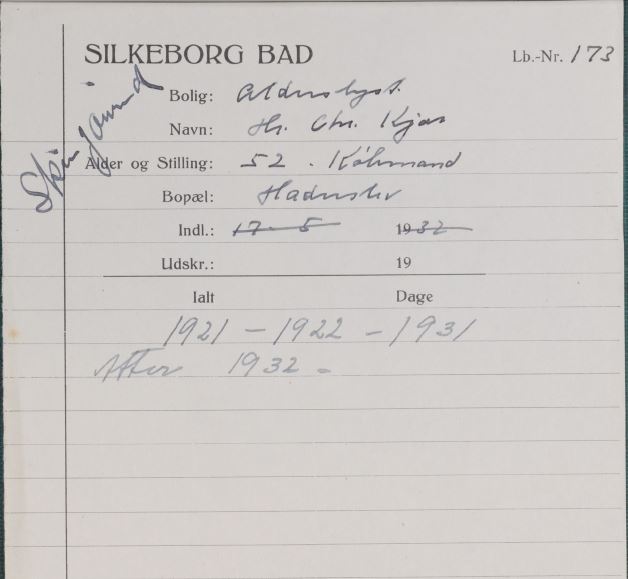 SILKEBORG BAD
Lb.-Nr. 173
Bolig: Alderslyst.
Navn: Hr. Chr. Kjær
Alder og Stilling: 52. Købmand
Bopæl: Haderslev
Indl.: 17-5 1932
Udskr.: 19
Ialt Dage
1921 - 1922 - 1931
Atter 1932 -